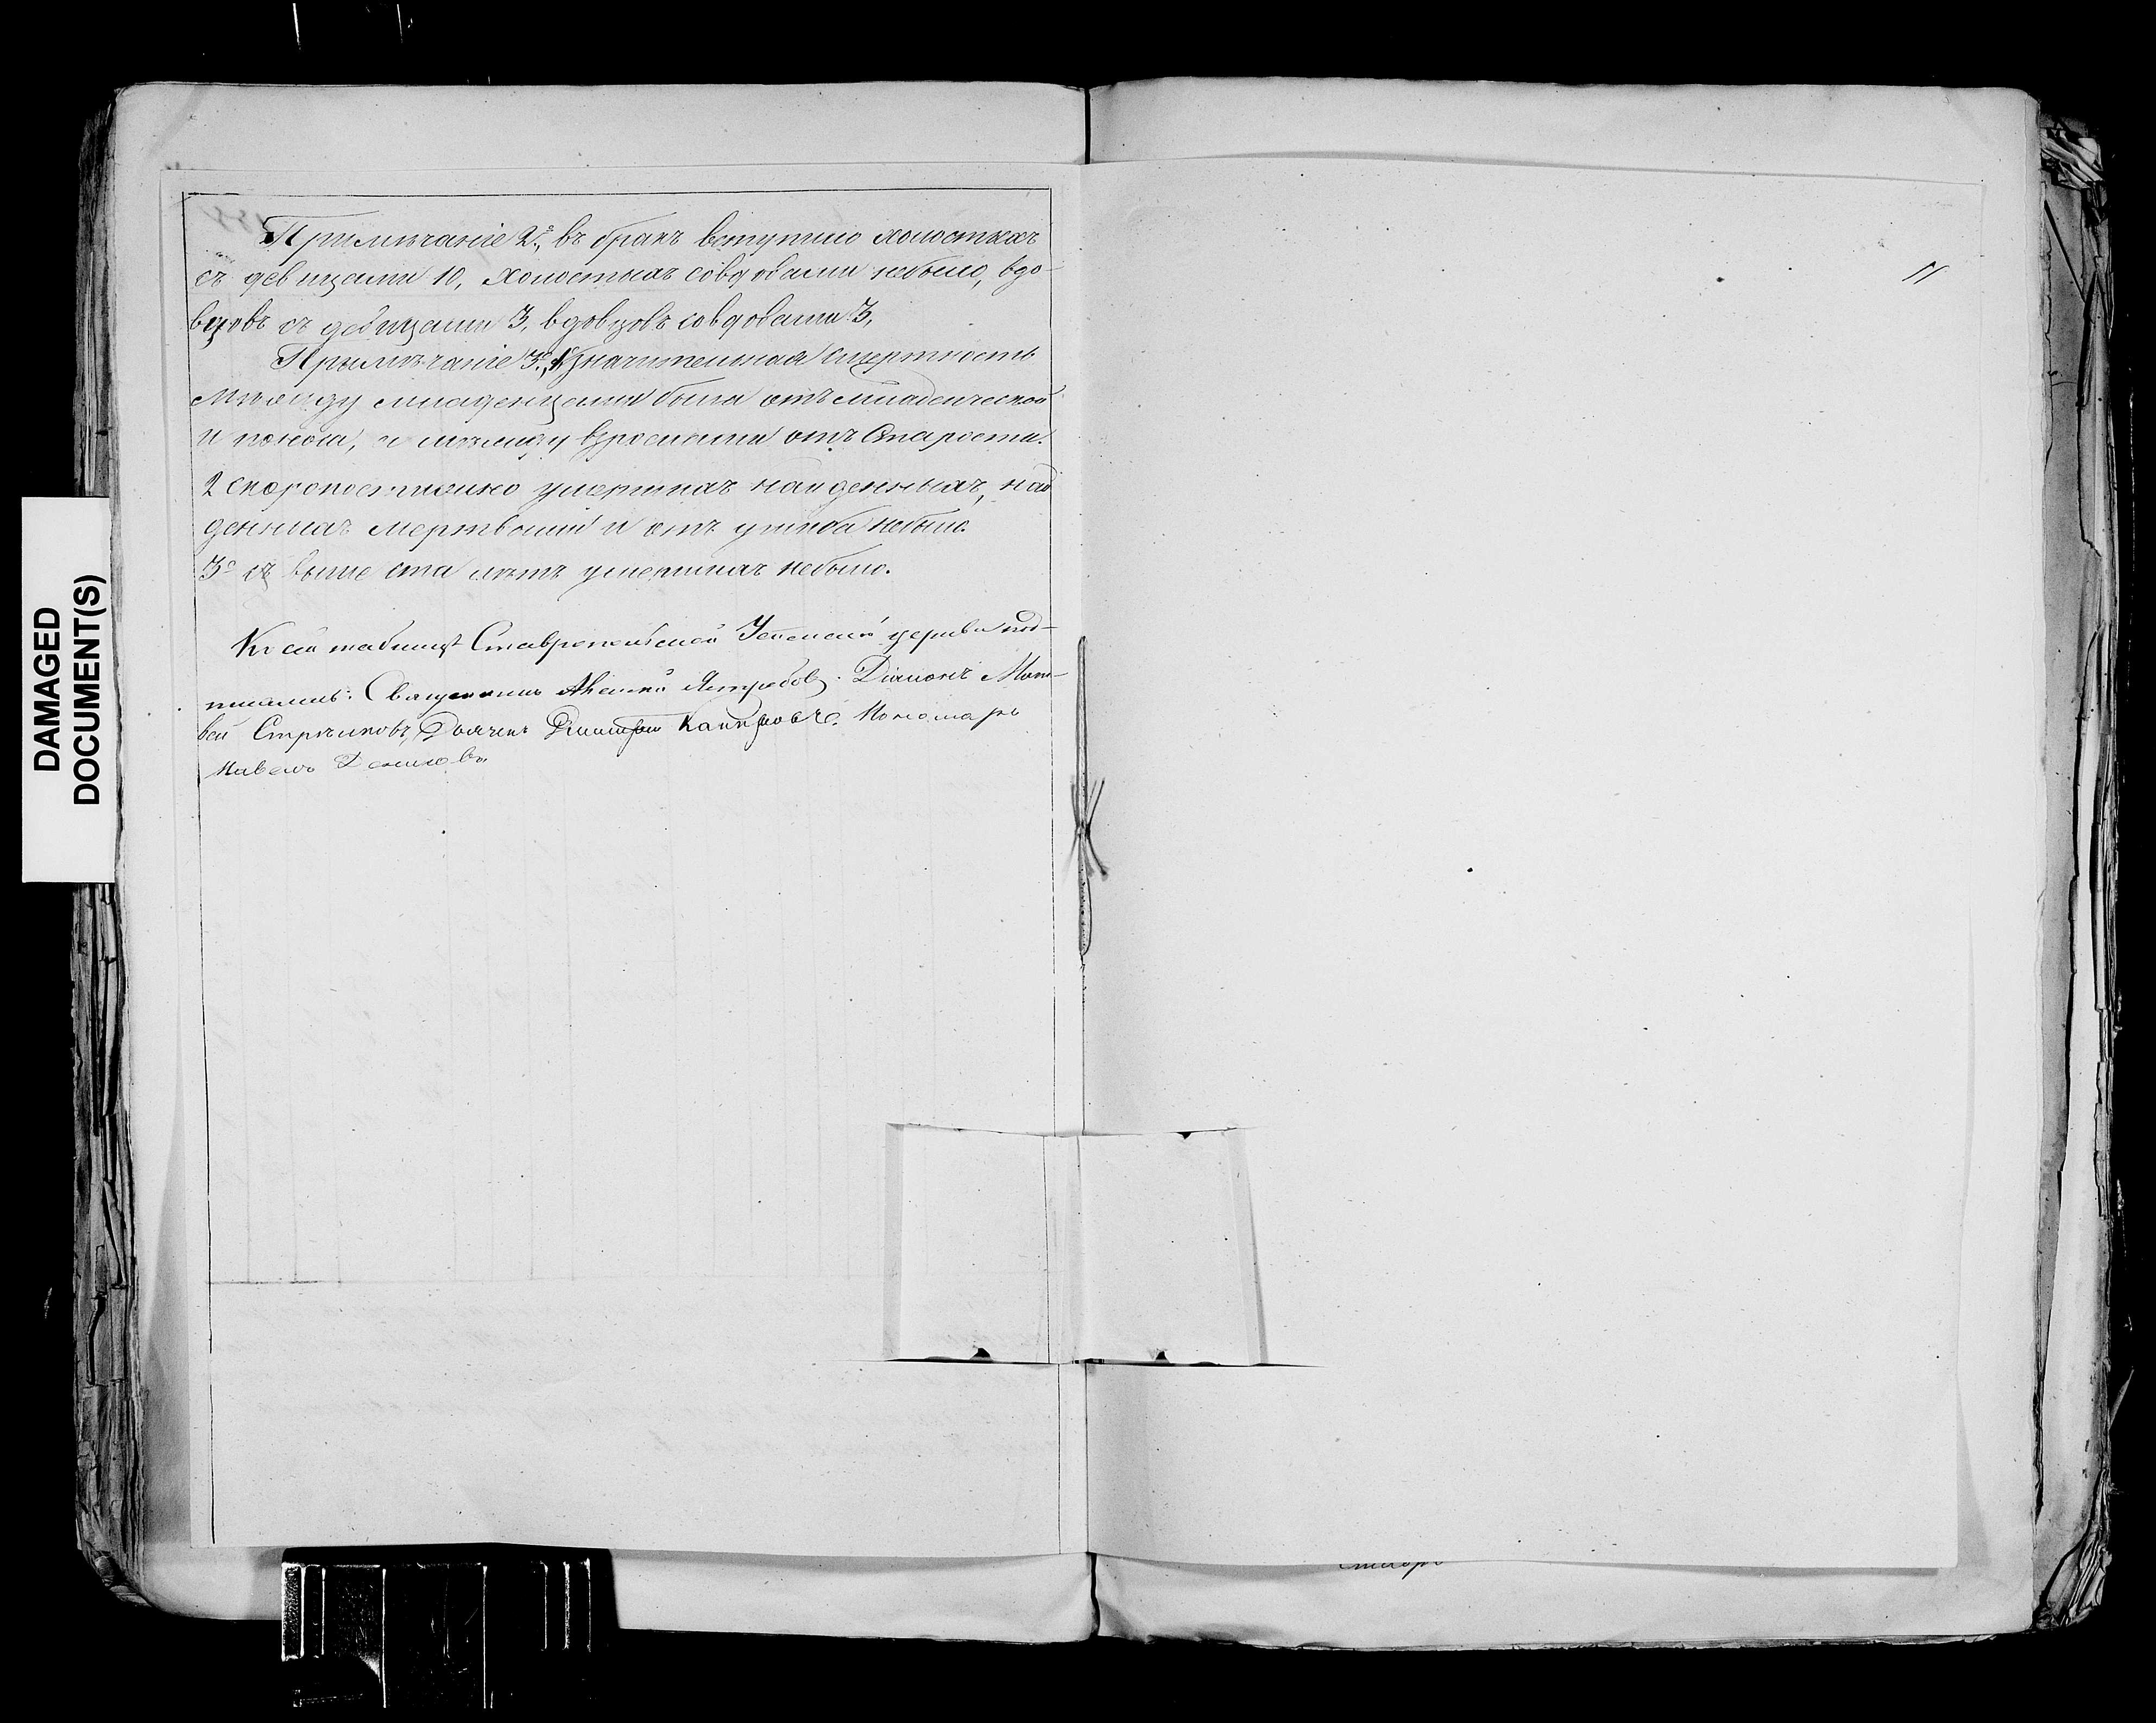 DAMAGED
DOCUMENT(S)
Примѣчаніе 2е, въ бракъ вступило холостыхъ
съ девицами 10, холостыхъ совдовами небыло, вдо-
вцовъ съ девицами 3, вдовцовъ совдовами 3,
Примѣчаніе 3е, значительная смертность
между младенцами была отъ младенческой
и поноса, а между взрослыми отъ Старости.
2 скоропостижно умершихъ найденныхъ, най
денныхъ мертвыми и отъ ушиба небыло.
3е свыше ста лѣтъ умершихъ небыло.
Къ сей таблицѣ Ставропольской Успенской церкви под-
писались: Священникъ Алексій Ястребовъ. Діаконъ Мат-
вей Стрѣлковъ, Дьячекъ Димитрій Пономарь
Павелъ
11